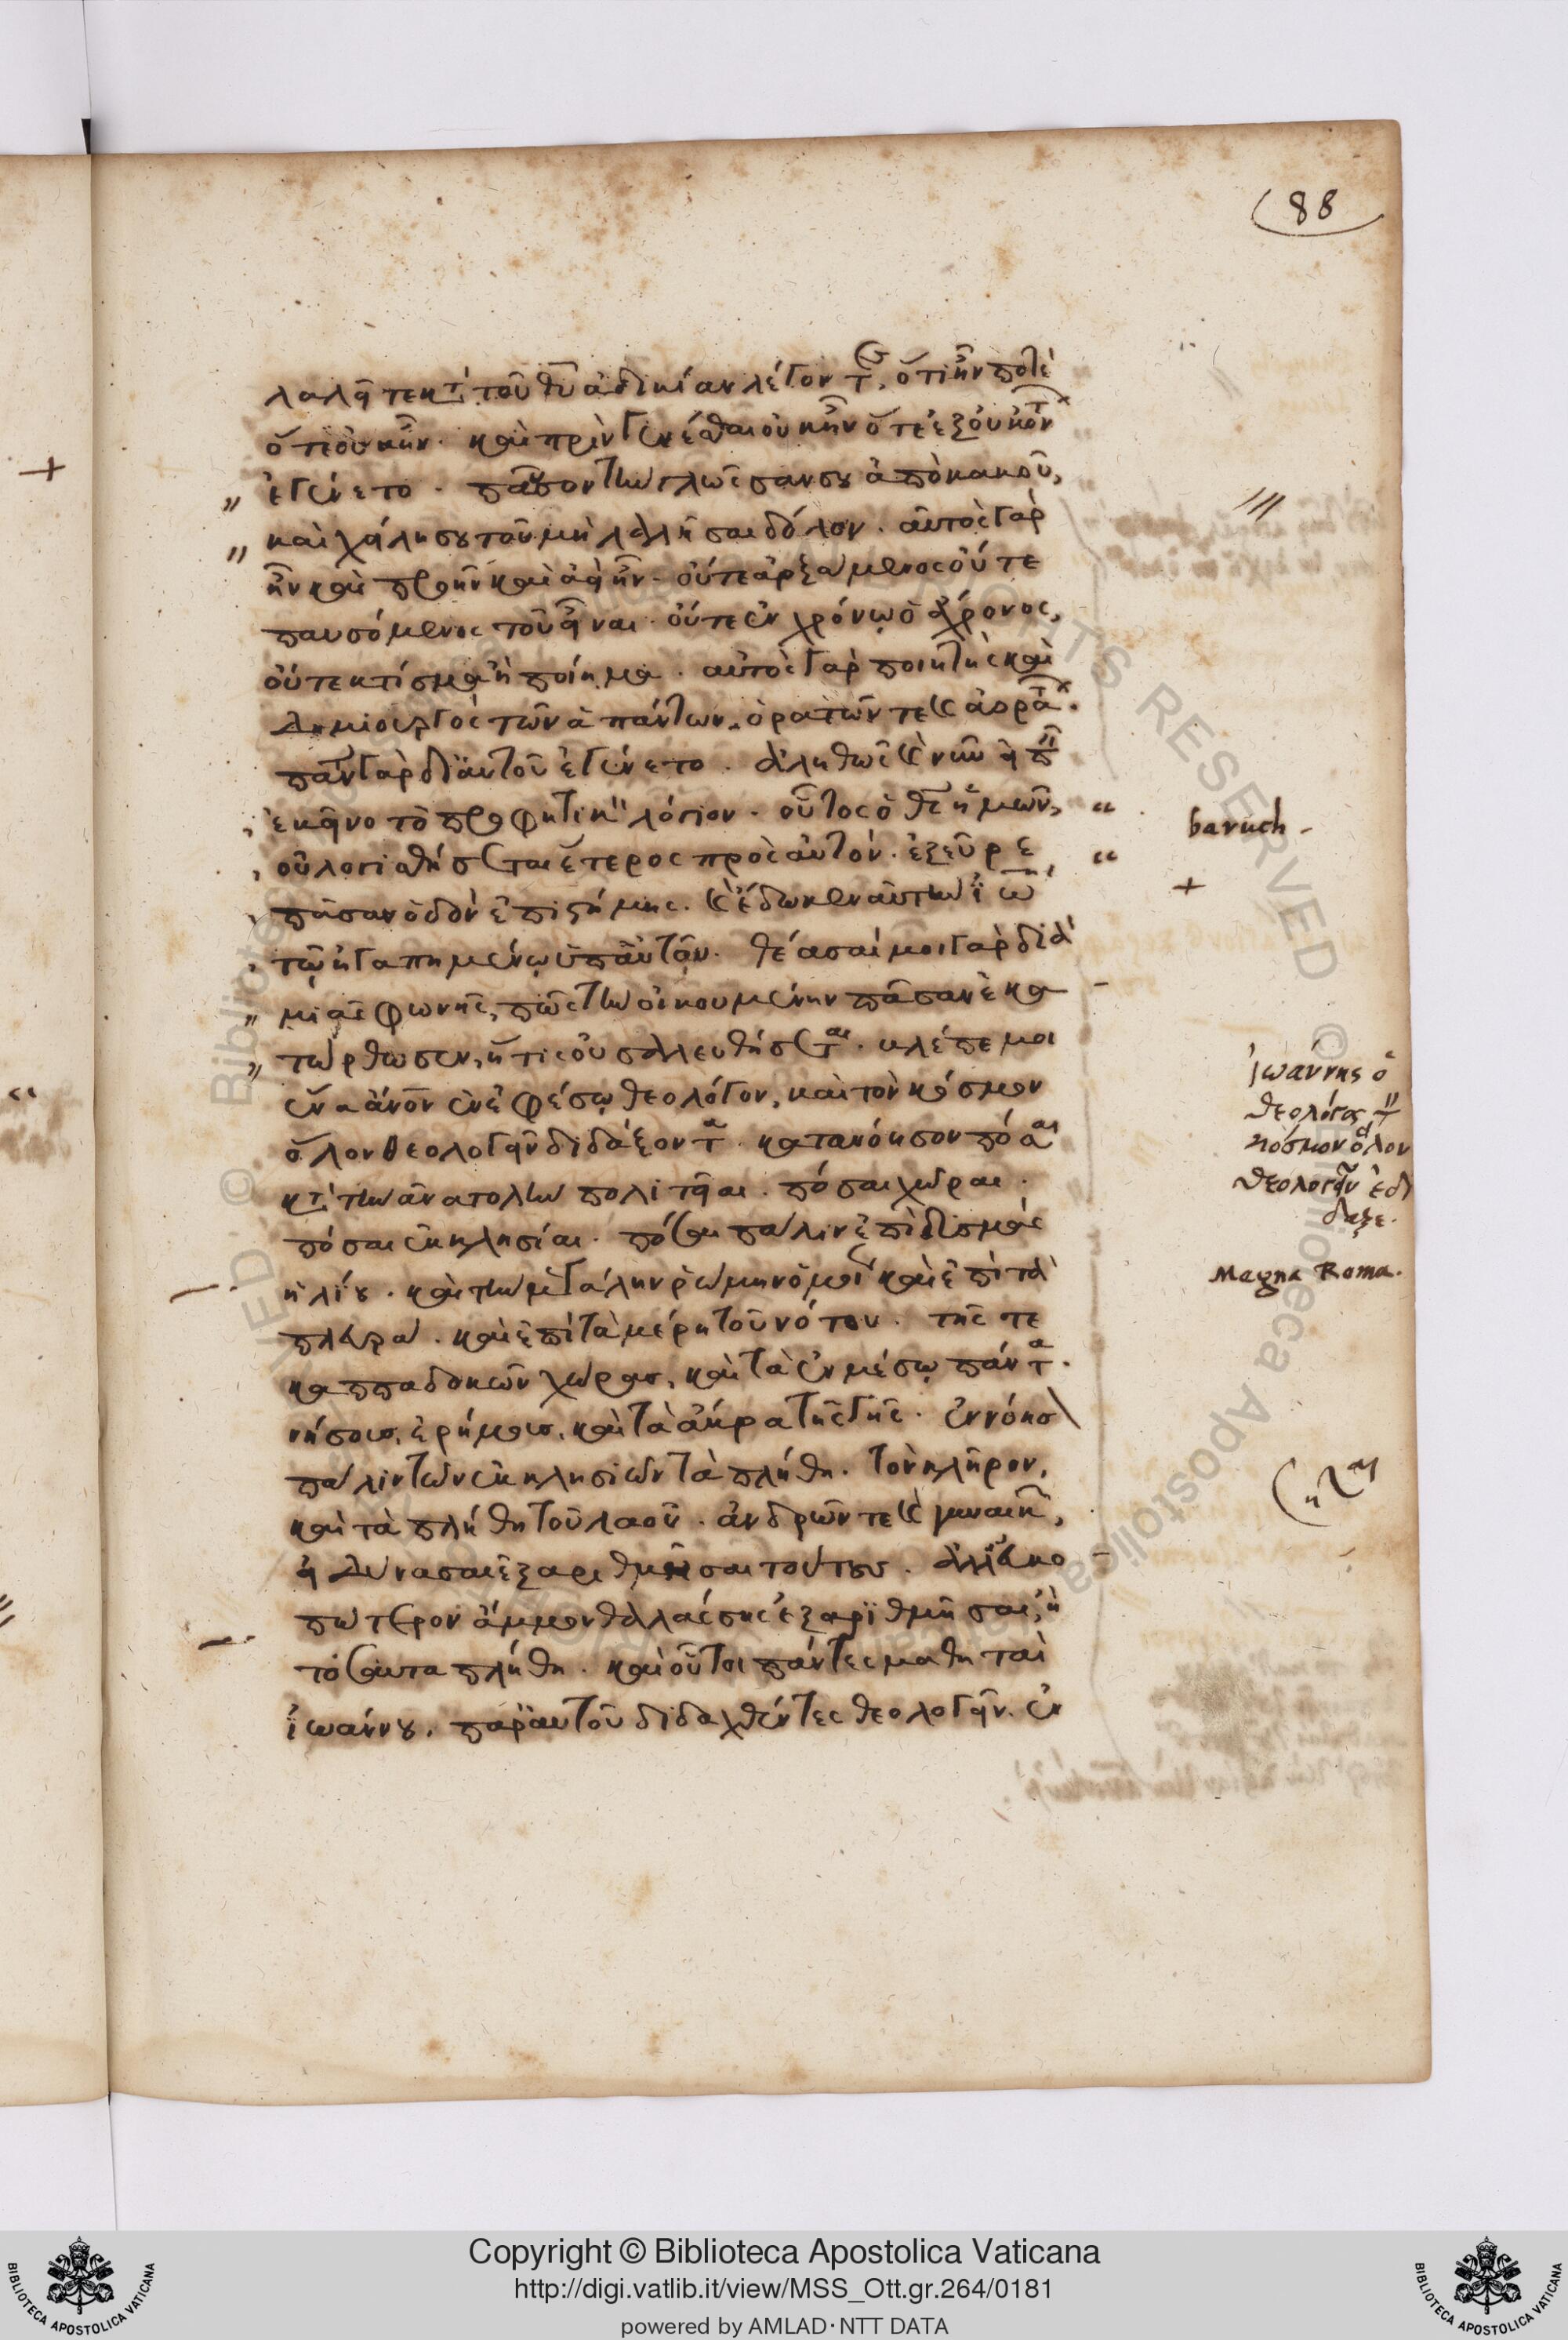 88
λαλεῖτε κτ τοῦ θυ ἀδικίαν λέγοντες, ὅτι ἦν ποτὲ
ὅτε οὐκ ἦν. καὶ πρὶν γενέσθαι οὐκ ἦν ὅτε ἐξ οὐκ ὄντων
ἐγένετο. παῦσον τὴν γλῶσσάν σου ἀπὸ κακοῦ,
καὶ χείλη σου τοῦ μὴ λαλῆσαι δόλον. αὐτὸς γὰρ
ἦν καὶ προῆν καὶ ἀεὶ ἦν. οὔτε ἀρξάμενος οὔτε
παυσόμενος τοῦ εἶναι. οὔτε ἐν χρόνω ὁ ἄχρονος,
οὔτε κτίσμα ἢ ποίημα. αὐτὸς γὰρ ποιητὴς καὶ
δημιουργὸς τῶν ἁπάντων. ὁρατῶν τε καὶ ἀορά των.
πάντα γὰρ δι' αὐτοῦ ἐγένετο. ἀληθῶς καὶ νῦν
ἐκεῖνο τὸ προφητικὸν λόγιον. οὗτος ὁ θς ἡμῶν,
οὐ λογισθήσεται ἕτερος πρὸς αὐτόν. ἐξεῦρε
πᾶσαν ὁδὸν ἐπιστήμης. καὶ ἔδωκεν αὐτὴν ἰω
τῶ ἠγαπημένω ὑπ' αὐτοῦ. θέασαί μοι γὰρ διὰ
μιᾶς φωνῆς, πῶς τὴν οἰκουμένην πᾶσαν ἐκα
τώρθωσεν, ἥτις οὐ σαλευθήσεται. βλέπε μοι
ἕνα ἄνον ἐν ἐφέσω θεολόγον, καὶ τὸν κόσμον
ὅλον θεολογεῖν διδάξοντα. κατανόησον πόσαι
κτ τὴν ἀνατολὴν πολιτεῖαι. πόσαι χῶραι.
πόσαι ἐκκλησίαι. πόσαι πάλιν ἐπὶ δυσμὰς
ἡλίου. καὶ τὴν μεγάλην ῥώμην ὁμοῦ καὶ ἐπὶ τὰ
πλευρά. καὶ ἐπὶ τὰ μέρη τοῦ νότου. τῆς τε
καππαδοκῶν χώραις, καὶ τὰ ἐν μέσω πάντα.
νήσοις, ἐρήμοις, καὶ τὰ ἄκρα τῆς γῆς. ἐννόησον
πάλιν τῶν ἐκκλησιῶν τὰ πλήθη. τὸν κλῆρον,
καὶ τὰ πλήθη τοῦ λαοῦ. ἀνδρῶν τε καὶ γυναικῶν,
εἰ δύνασαι ἐξαριθμῆσαι τούτους. ἀλλ' εὐκο
πώτερον ἄμμον θαλάσσης ἐξαριθμῆσαι, ἢ
τοσαῦτα πλήθη. καὶ οὗτοι πάντες μαθηταὶ
ἰωάννου, παρ' αὐτοῦ διδαχθέντες θεολογεῖν. ἐν
baruch
Ἰωάννης ὁ
θεολόγος τὸν
κόσμον ὅλον
θεολογεῖν ἐδί
δαξε.
Magna Roma.
Copyright © Biblioteca Apostolica Vaticana
http://digi.vatlib.it/view/MSS_Ott.gr.264/0181
powered by AMLAD·NTT DATA
BIBLIOTECA APOSTOLICA VATICANA
BIBLIOTECA APOSTOLICA VATICANA